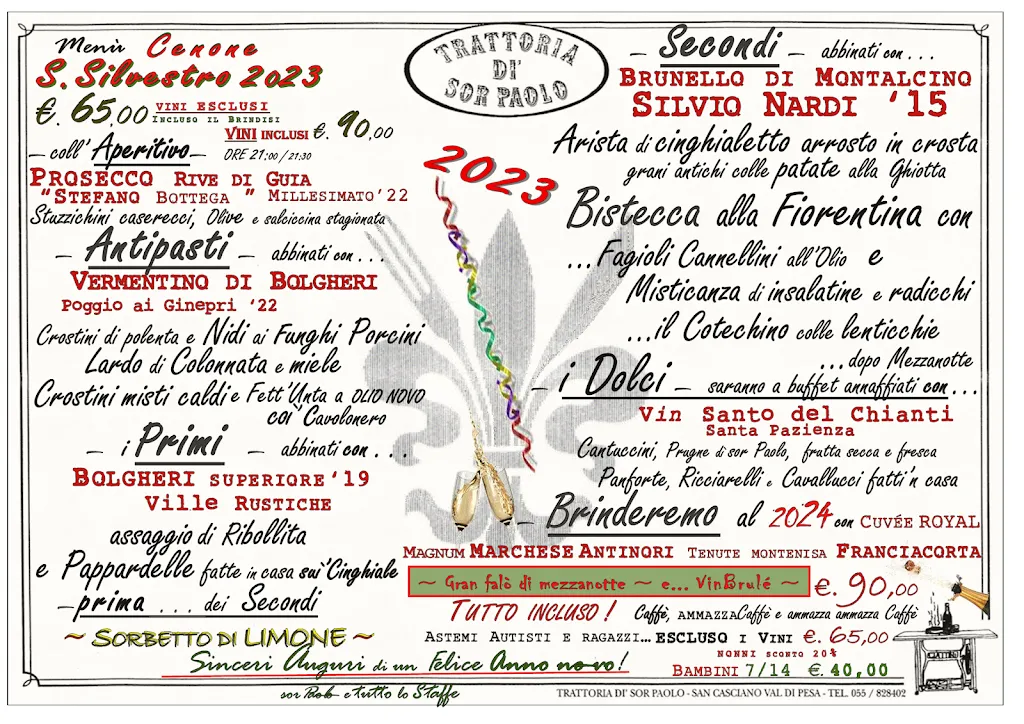 Menù Cenone
S. Silvestro 2023
€. 65,00 VINI ESCLUSI
INCLUSO IL BRINDISI
VINI INCLUSI €. 90,00
— coll' Aperitivo — ORE 21:00 / 21:30
PROSECCO RIVE DI GUIA
"STEFANO BOTTEGA " MILLESIMATO '22
Stuzzichini caserecci, Olive e salciccina stagionata
— Antipasti — abbinati con . . .
VERMENTINO DI BOLGHERI
POGGIO AI GINEPRI '22
Crostini di polenta e Nidi ai Funghi Porcini
Lardo di Colonnata e miele
Crostini misti caldi e Fett'Unta a OLIO NOVO
coi' Cavolonero
— i Primi — abbinati con . . .
BOLGHERI SUPERIORE '19
VILLE RUSTICHE
assaggio di Ribollita
e Pappardelle fatte in casa sui'Cinghiale
—prima . . . dei Secondi
~ SORBETTO DI LIMONE ~
TRATTORIA
DI'
SOR PAOLO
2023
— Secondi — abbinati con . . .
BRUNELLO DI MONTALCINO
SILVIO NARDI '15
Arista di cinghialetto arrosto in crosta
grani antichi colle patate alla Ghiotta
Bistecca alla Fiorentina con
...Fagioli Cannellini all'Olio e
Misticanza di insalatine e radicchi
...il Cotechino colle lenticchie
...dopo Mezzanotte
— i Dolci — saranno a buffet annaffiati con . . .
Vin Santo del Chianti
Santa Pazienza
Cantuccini, Prugne di sor Paolo, frutta secca e fresca
Panforte, Ricciarelli e Cavallucci fatti'n casa
— Brinderemo al 2024 con CUVÉE ROYAL
MAGNUM MARCHESE ANTINORI TENUTE MONTENISA FRANCIACORTA
~ Gran falò di mezzanotte ~ e... VinBrulé ~ €. 90,00
TUTTO INCLUSO ! Caffè, AMMAZZACaffè e ammazza ammazza Caffè
ASTEMI AUTISTI E RAGAZZI... ESCLUSO I VINI €. 65,00
NONNI SCONTO 20%
BAMBINI 7/14 €. 40,00
Sinceri Auguri di un Felice Anno novo!
sor Paolo e tutto lo Staffe
TRATTORIA DI' SOR PAOLO - SAN CASCIANO VAL DI PESA - TEL. 055 / 828402